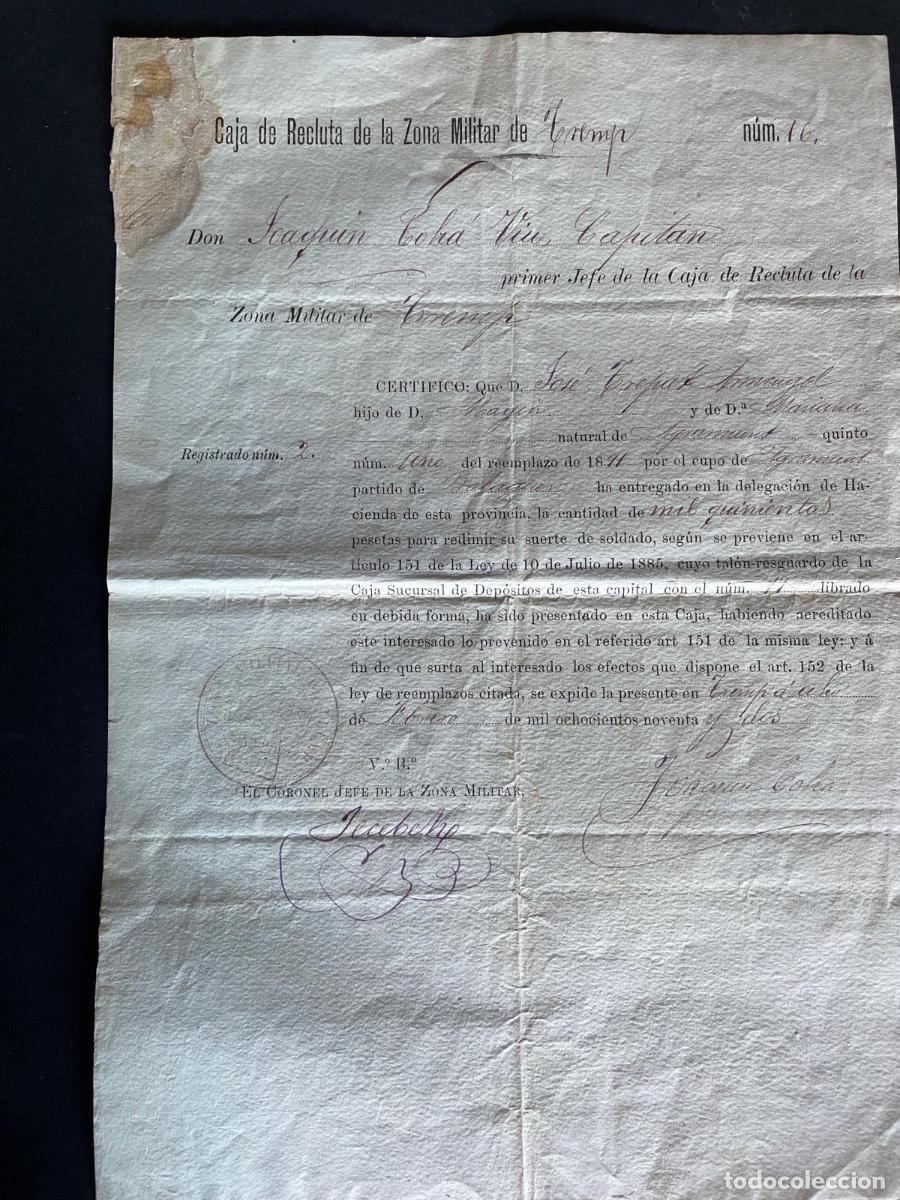 Caja de Recluta de la Zona Militar de Tremp núm. 16.
Don Joaquin Cohá Viu, Capitan
primer Jefe de la Caja de Recluta de la
Zona Militar de Tremp
CERTIFICO: Que D. José Trepat Armengol
hijo de D. Magin y de D.ª Mariana
natural de Agramunt quinto
Registrado núm. 2.
núm. Uno del reemplazo de 1891 por el cupo de Agramunt
partido de Balaguer ha entregado en la delegación de Ha-
cienda de esta provincia, la cantidad de mil quinientas
pesetas para redimir su suerte de soldado, según se previene en el ar-
tículo 151 de la Ley de 10 de Julio de 1885, cuyo talón-resguardo de la
Caja Sucursal de Depósitos de esta capital con el núm. librado
en debida forma, ha sido presentado en esta Caja, habiendo acreditado
este interesado lo prevenido en el referido art 151 de la misma ley: y á
fin de que surta al interesado los efectos que dispone el art. 152 de la
ley de reemplazos citada, se expide la presente en Tremp á
de Febrero de mil ochocientos noventa y dos
V.º B.º
EL CORONEL JEFE DE LA ZONA MILITAR,
Joaquin Cohá
todocoleccion